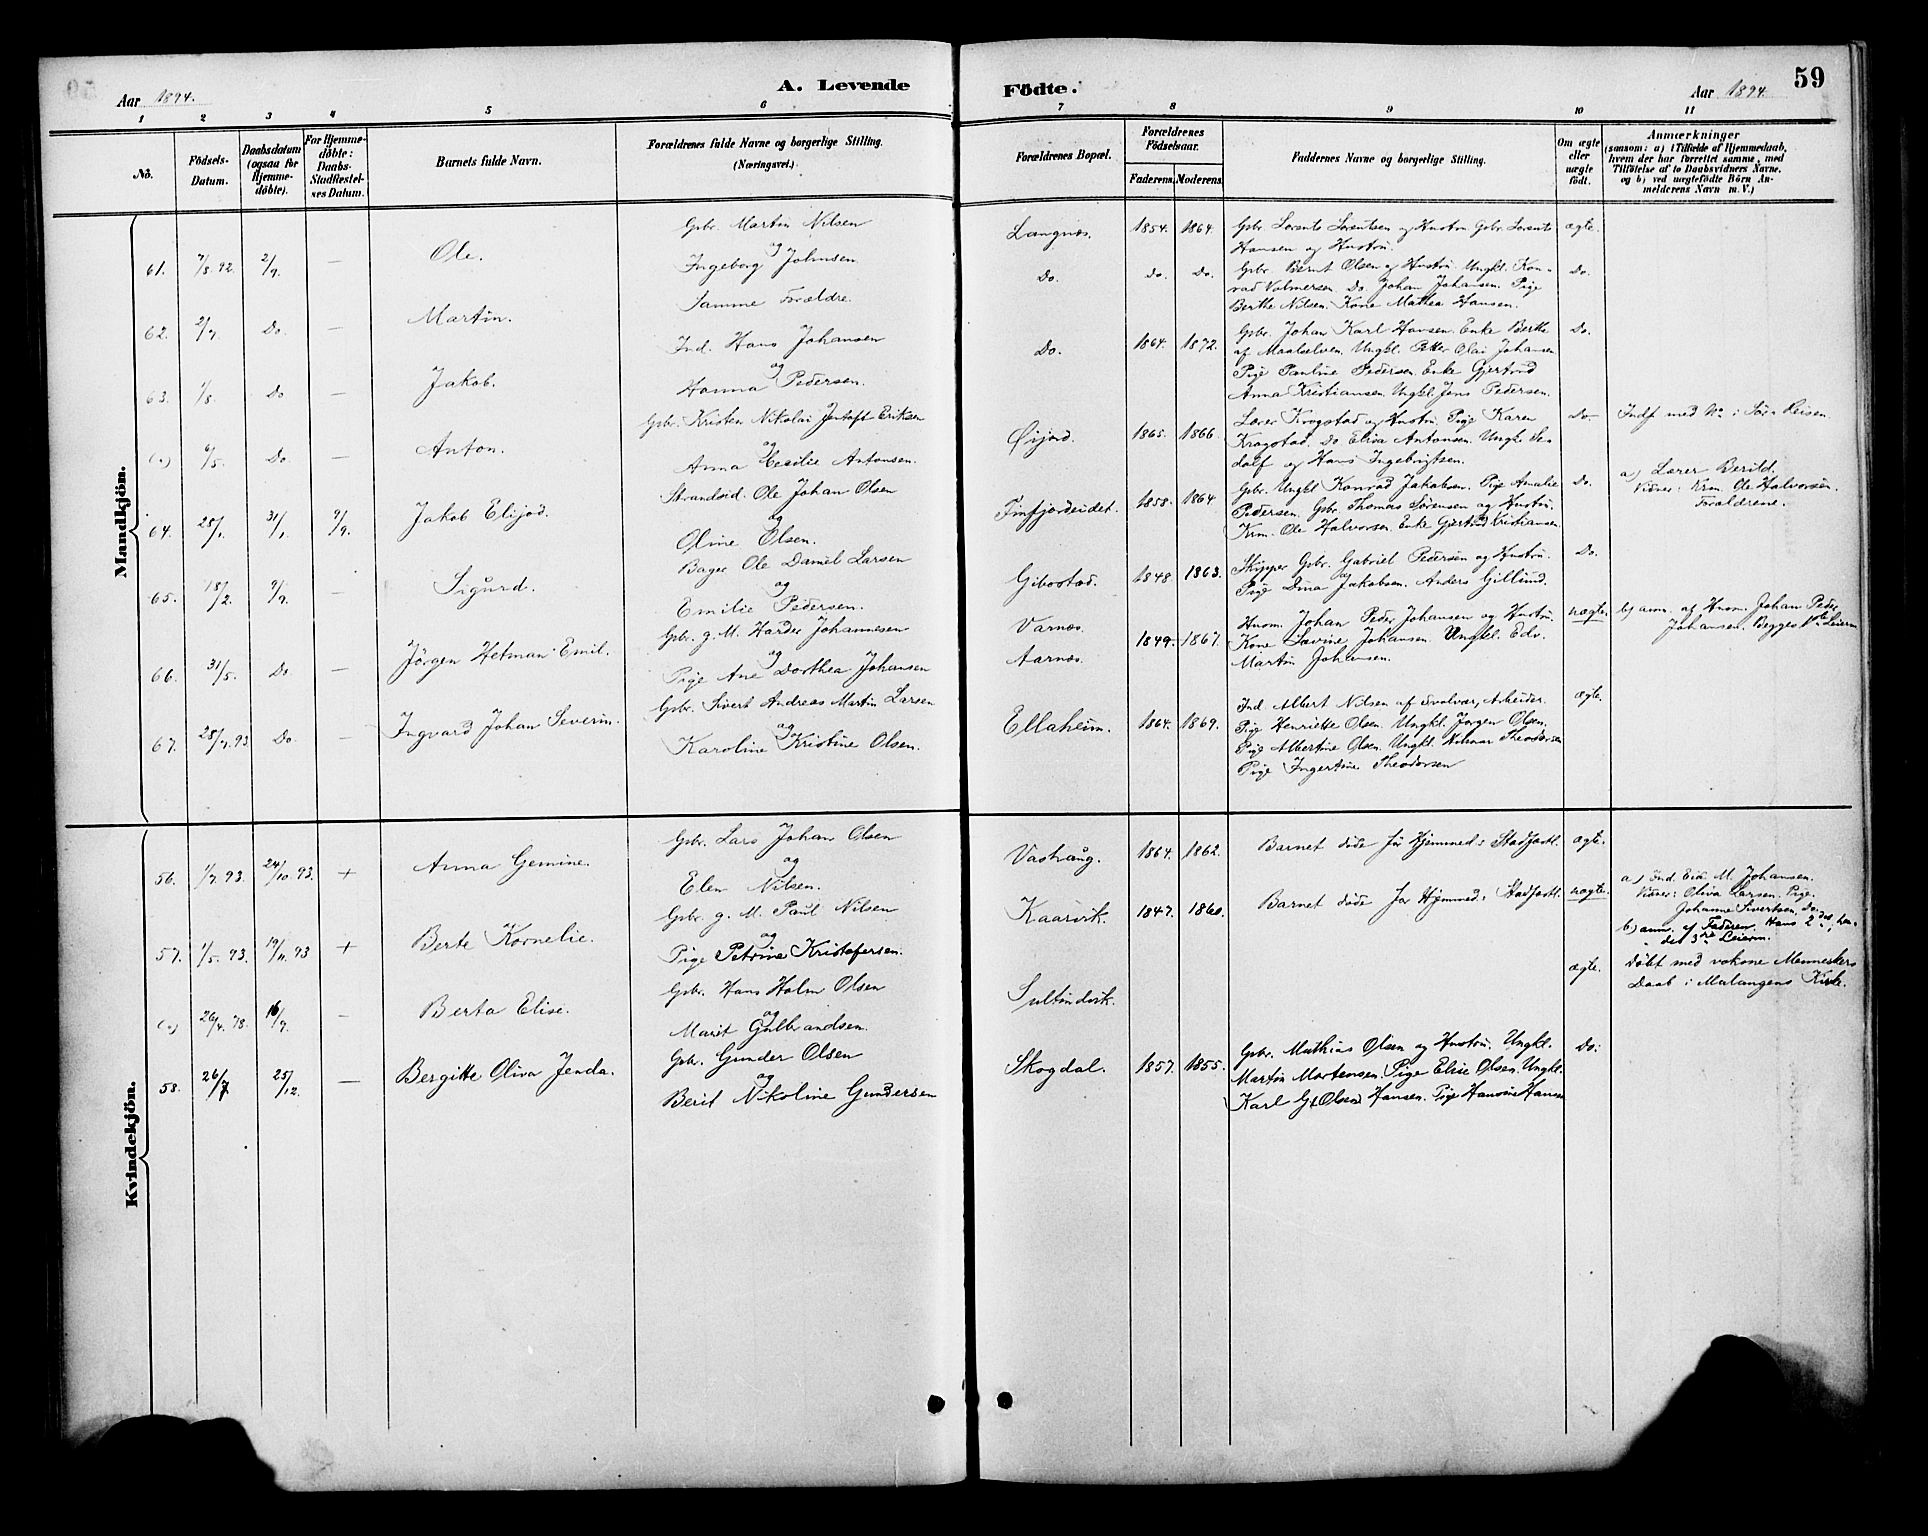 59
Aar 1894.
A. Levende
Födte.
Aar 1894.
1 2 3 4 5 6 7 8 9 10 11
No.
Födsels-
Datum.
Daabsdatum
(ogsaa for
Hjemme-
döbte).
For Hjemme-
döbte:
Daabs-
Stadfæstel-
ses Datum.
Barnets fulde Navn.
Forældrenes fulde Navne og borgerlige Stilling.
(Næringsvei.)
Forældrenes Bopæl.
Forældrenes
Födselsaar.
Faderens. Moderens.
Faddernes Navne og borgerlige Stilling.
Om ægte
eller
uægte
födt.
Anmærkninger
(saasom: a) i Tilfælde af Hjemmedaab,
hvem der har forrettet samme, med
Tilföielse af to Daabsvidners Navne,
og b) ved uægtefödte Börn An-
melderens Navn m. V.)
Mandkjön.
61. 7/8.92. 2/9. — Ole.
Gbr. Martin Nilsen
og
Ingeborg Johnsen
Langnæs. 1854. 1864.
Gbr. Lorents Lorentsen og Hustru Gbr. Lorents
Hansen og Hustru.
ægte.
62. 2/7. Do — Martin.
Samme Forældre.
Do. Do. Do.
Gbr. Bernt Olsen og Hustru. Ungkl. Kon-
rad Volmersen. Do. Johan Johansen. Pige
Berthe Nilsen. Kone Mathea Hansen.
Do.
63. 1/8. Do — Jakob.
Ind. Hans Johansen
og
Hanna Pedersen.
Do. 1864. 1872.
Gbr. Johan Karl Hansen. Enke Berthe
af Maalselven. Ungkl. Petter Olai Johansen
Pige Pauline Pedersen. Enke Gjertrud
Anna Kristiansen Ungkl. Jens Pedersen.
Do.
6/5. Do — Anton.
Gbr. Kristen Nikolai Jentoft Eriksen
og
Anna Cecilie Antonsen.
Øijord. 1865. 1866.
Lærer Krogstad og Hustru. Pige Karen
Krogstad. Do Elisa Antonsen. Ungkl. Se-
dolf og Hans Ingebrigtsen.
Do
Indf med No i Sør-Reisen.
64. 28/1. 31/1. 9/9. Jakob Elijod.
Strandsid. Ole Johan Olsen
og
Oline Olsen.
Finfjordeidet. 1858. 1864
Gbr. Ungkl Konrad Jakobsen. Pige Amalie
Pedersen. Gbr. Thomas Sørensen og Hustru.
Krm. Ole Halvorsen Enke Gjertrud Kristiansen
Do.
a) Lærer Berild.
Vidner: Krm. Ole Halvorsen.
Forældrene.
65. 18/2. 9/9. — Sigurd.
Bager Ole Daniel Larsen
og
Emilie Pedersen.
Gibostad. 1848. 1863.
Skipper Gbr. Gabriel Pedersen og Hustru.
Pige Dina Jakobsen. Anders Gillund.
Do.
66. 31/5. Do — Jörgen Hetman Emil.
Gbr. g. M. Harder Johannesen
og
Pige Ane Dorthea Johansen
Varnæs.
Aarnæs. 1849. 1867.
Husm. Johan Peder Johansen og Hustru.
Kone Lavine Johansen. Ungkl. Edv.
Martin Johansen.
uægte.
b) anm. af Husm. Johan Peder
Johansen. Begges 1ste Leierm.
67. 28/7.93 Do. — Ingvard Johan Severin.
Gbr. Sivert Andreas Martin Larsen
og
Karoline Kristine Olsen.
Ellaheim. 1864. 1869.
Ind Albert Nilsen af Svolvær, Arbeider.
Pige Henriette Olsen. Ungkl. Jørgen Olsen.
Pige Albertine Olsen. Ungkl. Hilmar Theodorsen
Pige Ingertine Theodorsen
ægte.
Kvindekjön.
56. 1/7.93. 24/10.93. + Anna Gemine.
Gbr. Lars Johan Olsen
og
Elen Nilsen.
1864. 1862.
Barnet döde før Hjemmed: Stadfæstl.
ægte.
57. 1/5.93. 19/11.93 + Berte Kornelie.
Gbr. g. M. Paul Nilsen
og
Pige Petrine Kristofersen.
Kaarvik. 1847. 1860.
Barnet döde før Hjemmed: Stadfæstl.
uægte.
a) Ind. Eid. M. Johansen.
Vidner: Oliva Larsen. Pige
Johanne Sivertsen. Do.
b) anm. af Faderen. Hans 2det, hen-
des 3die Leierm.
26/4.78. 16/9. — Berta Elise.
Gbr. Hans Holm Olsen
og
Marit Gulbrandsen.
Sultindvik.
ægte.
Döbt med voksne Menneskers
Daab i Malangens Kirke.
58. 26/7 25/12. — Bergitte Oliva Jenda.
Gbr. Gunder Olsen
og
Berit Nikoline Gundersen
Skogdal. 1857. 1855.
Gbr. Mathias Olsen og Hustru. Ungkl.
Martin Mortensen. Pige Elise Olsen. Ungkl.
Karl Hansen. Pige Hansine Hansen
Do.